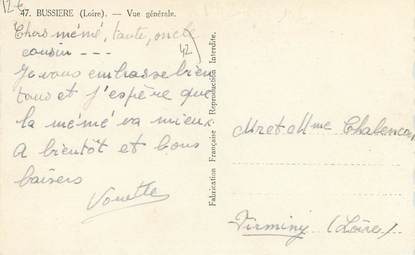 12 €
47. BUSSIERE (Loire). — Vue générale.
Chers mémé, tante, oncle
cousin - - -
42
Je vous embrasse bien
tous et j'espère que
la mémé va mieux.
A bientôt et bons
baisers
Fabrication Française - Reproduction Interdite.
Mr et Mme Chabence,
Firminy (Loire)